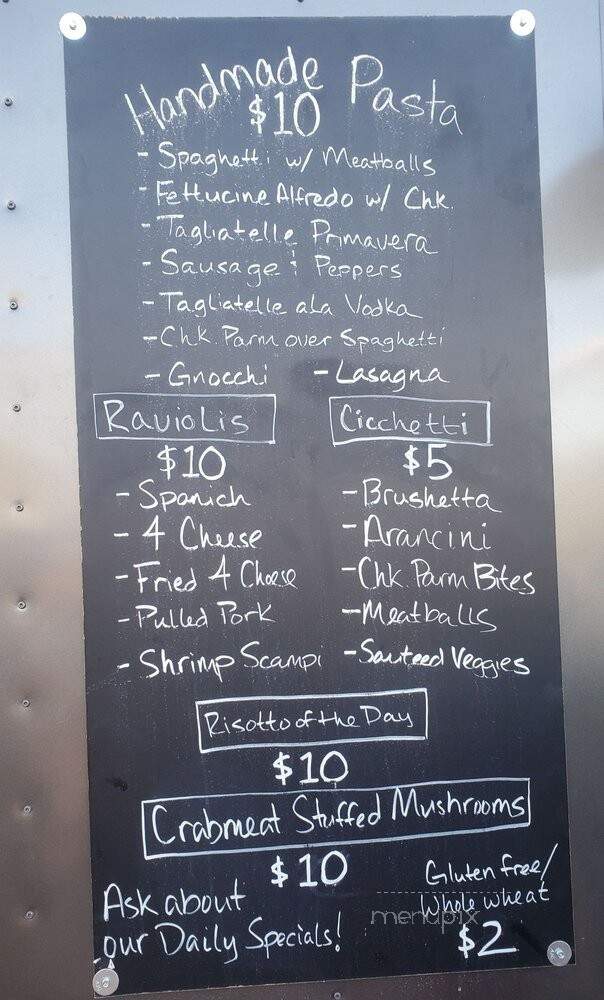 Handmade Pasta
$10
- Spaghetti w/ Meatballs
- Fettucine Alfredo w/ Chk.
- Tagliatelle Primavera
- Sausage & Peppers
- Tagliatelle ala Vodka
- Chk. Parm over Spaghetti
- Gnocchi - Lasagna
Raviolis
$10
- Spanich
- 4 Cheese
- Fried 4 Cheese
- Pulled Pork
- Shrimp Scampi
Cicchetti
$5
- Brushetta
- Arancini
- Chk. Parm Bites
- Meatballs
- Sauteed Veggies
Risotto of the Day
$10
Crabmeat Stuffed Mushrooms
$10
Ask about
our Daily Specials!
Gluten free/
Whole wheat
$2
menupix